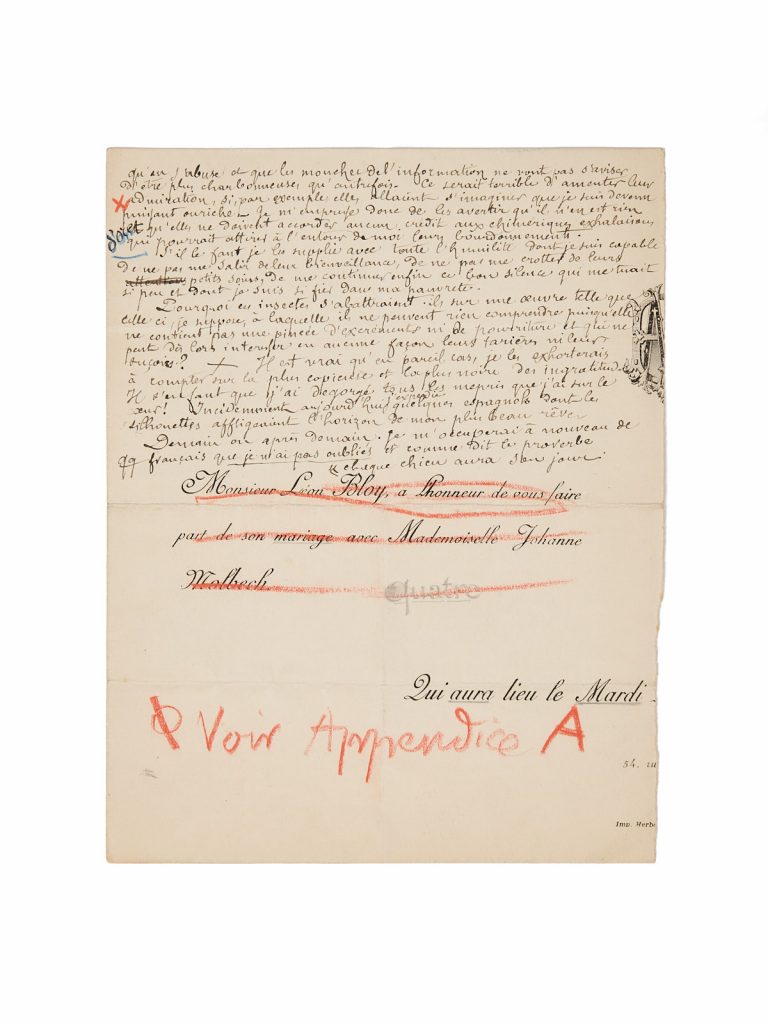 qu'on s'abuse et que les mouches de l'information ne vont pas s'aviser
d'être plus charbonneuses qu'autrefois. Ce serait terrible d'ameuter leur
admiration, si, par exemple elles allaient s'imaginer que je suis devenu
puissant ou riche. Je m'empresse donc de les avertir qu'il n'en est rien
et qu'elles ne doivent accorder aucun crédit aux chimériques exhalaisons
qui pourrait attirer à l'entour de moi leurs bourdonnements.
S'il le faut je les supplie avec toute l'humilité dont je suis capable
de ne pas me salir de leur bienveillance, de ne pas me crotter de leurs
attention petits soins, de me continuer enfin ce bon silence qui me tuait
si peu et dont je suis si fier dans ma pauvreté.
Pourquoi ces insectes s'abattraient-ils sur une œuvre telle que
celle ci, je suppose, à laquelle il ne peuvent rien comprendre puisqu'elle
ne contient pas une pincée d'excréments ni de pourriture et qui ne
peut dès lors intéresser en aucune façon leurs tarières ni leurs
suçoirs? Il est vrai qu'en pareil cas, je les exhorterais
à compter sur la plus copieuse et la plus noire des ingratitudes
Il s'en faut que j'ai dégorgé tous les mépris que j'ai sur le
cœur! Incidemment aujourd'hui quelques espagnols dont les
silhouettes affligeaient l'horizon de mon plus beau rêve
Demain ou après demain. Je m'occuperai à nouveau de
qq français que je n'ai pas oubliés et comme dit le proverbe
« chaque chien aura son jour
Monsieur Léon Bloy, a l'honneur de vous faire
part de son mariage avec Mademoiselle Johanne
Molbech.
quatre
Qui aura lieu le Mardi
Voir Appendice A
54, ru
Imp. Herbe